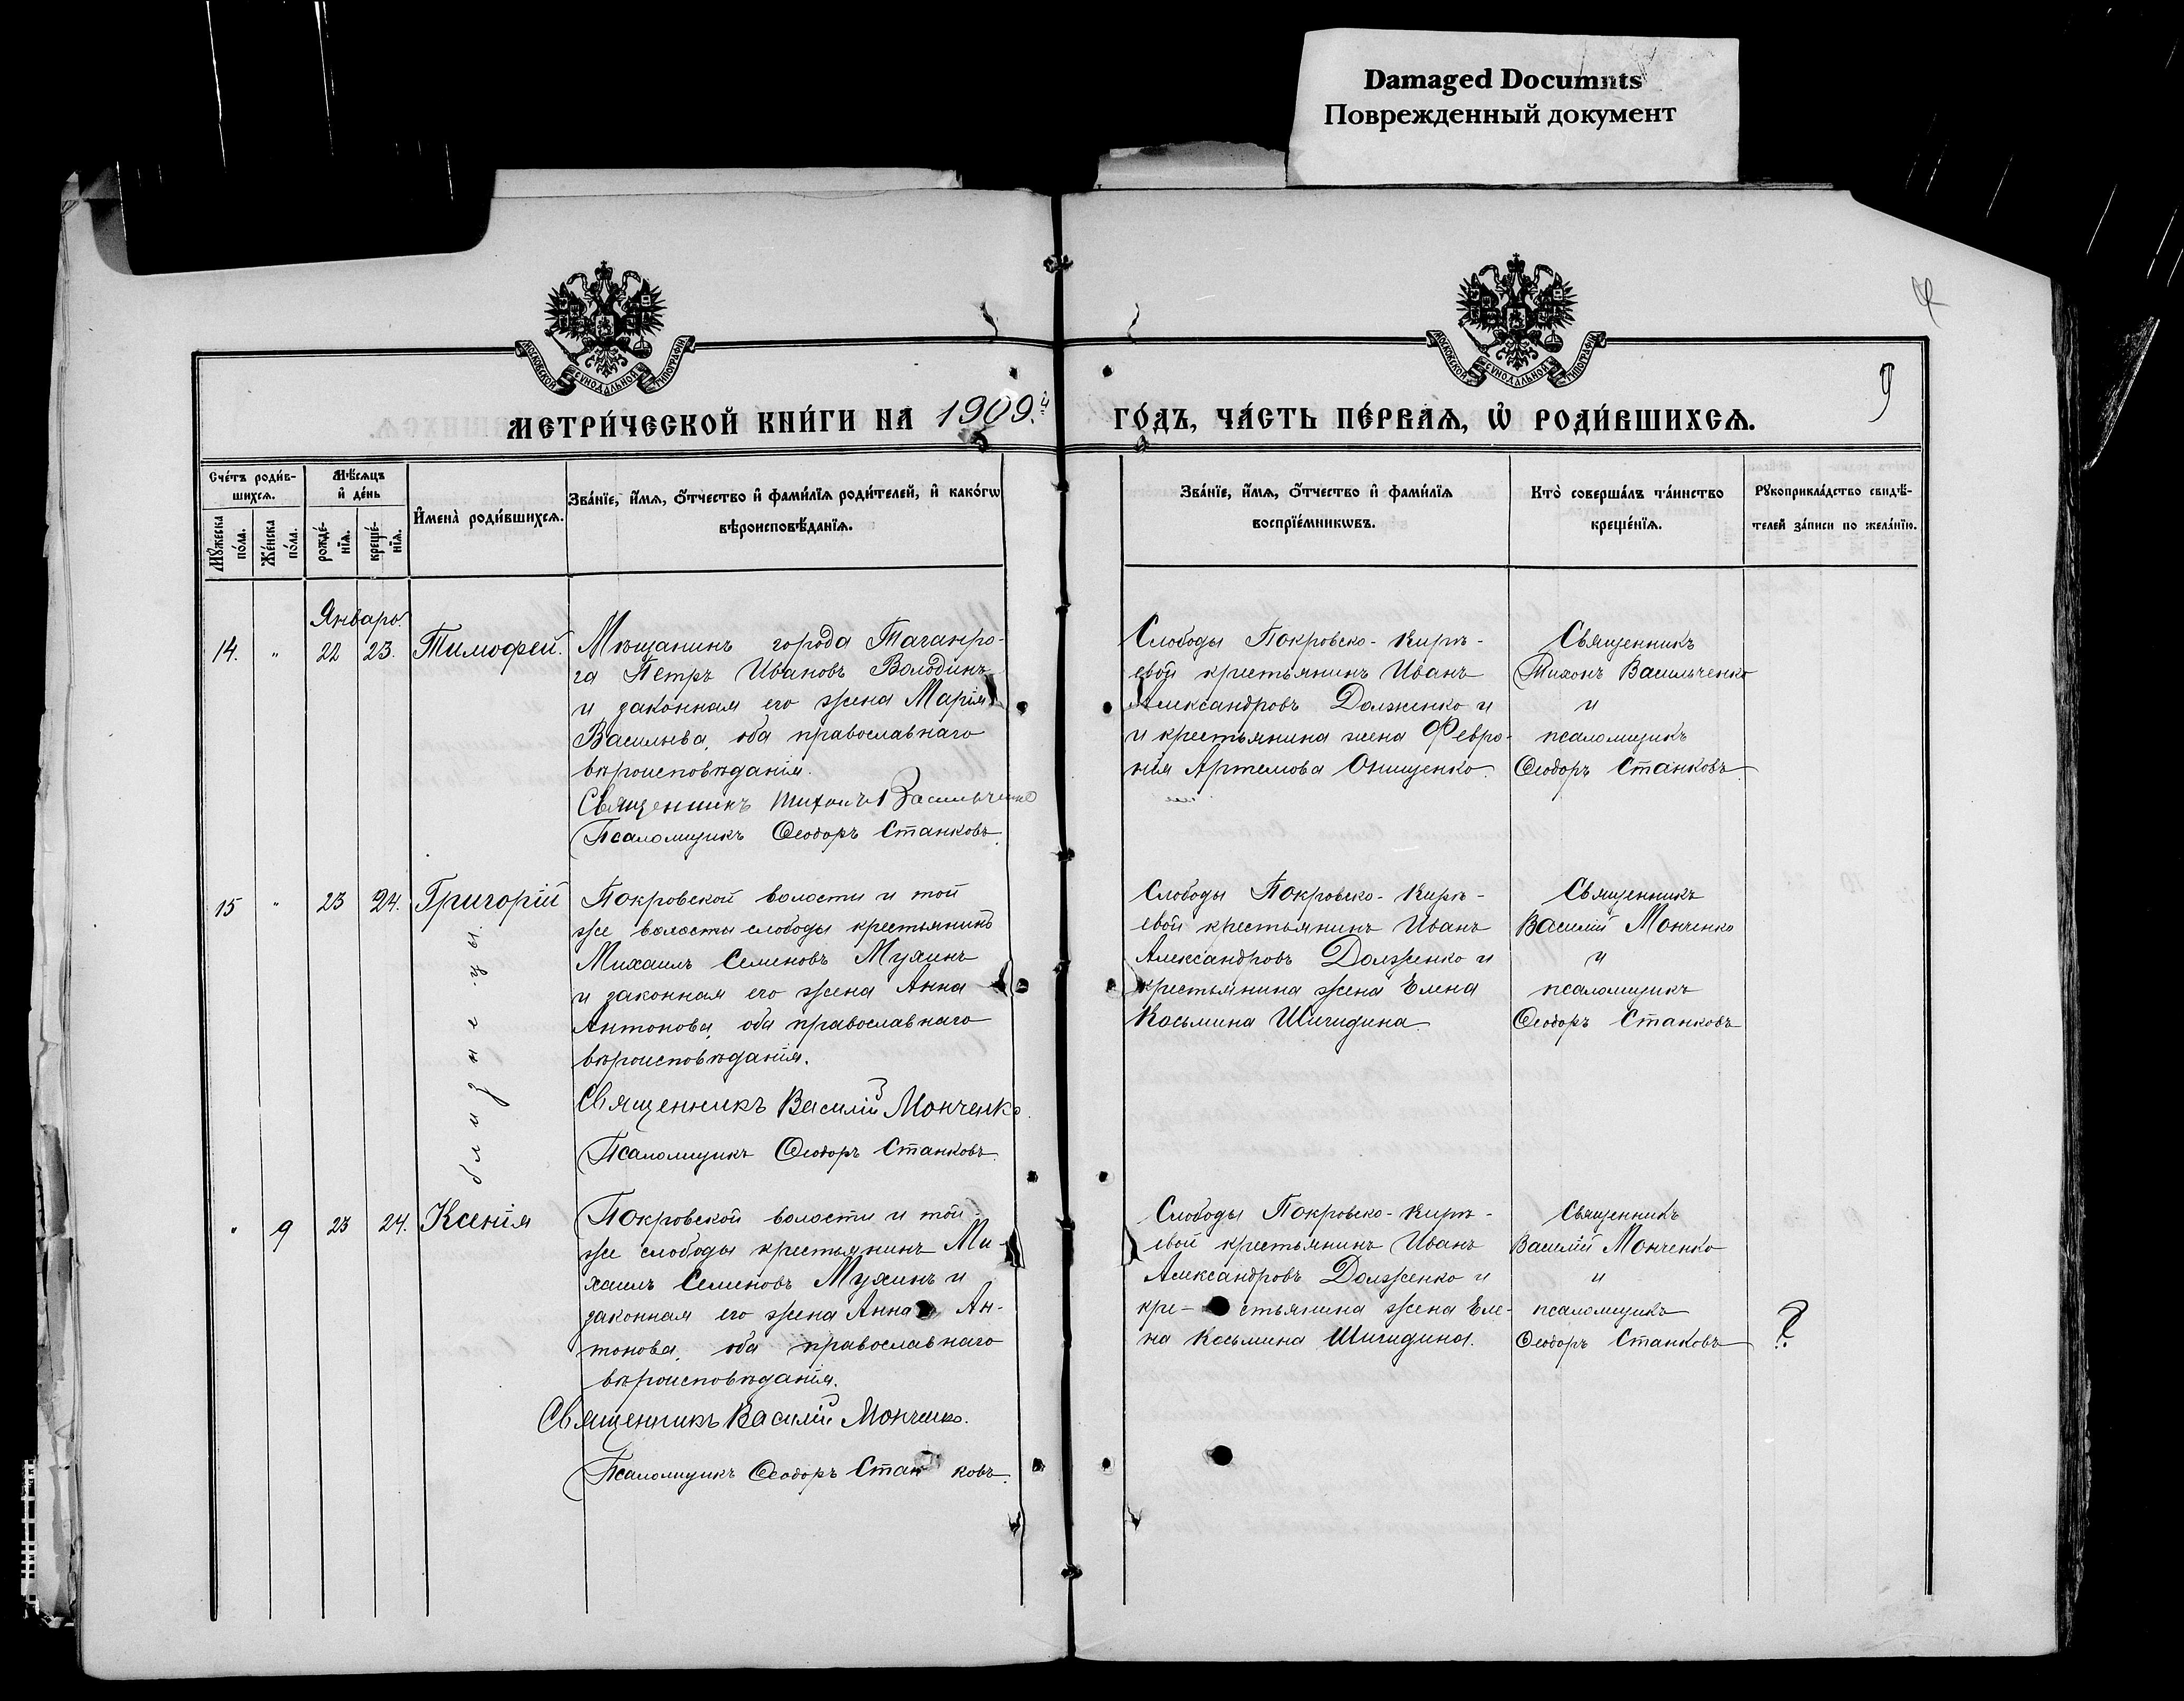 Damaged Documnts
Поврежденный документ
МОСКОВСКОЙ СѴНОДАЛЬНОЙ ТИПОГРАФІИ
МОСКОВСКОЙ СѴНОДАЛЬНОЙ ТИПОГРАФІИ
9
МЕТРИ́ЧЕСКОЙ КНИ́ГИ НА 1909.й ГО́ДЪ, ЧА́СТЬ ПЕ́РВАѦ, Ѡ҆ РОДИ́ВШИХСѦ.
Сче́тъ роди́в-
шихсѧ.
Мꙋ́жеска
по́ла.
Же́нска
по́ла.
Мѣ́сѧцъ
и҆ де́нь
рожде́-
нїѧ.
креще́-
нїѧ.
И҆мена̀ роди́вшихсѧ.
Зва́нїе, и҆́мѧ, ѻ҆́тчество и҆ фами́лїѧ роди́телей, и҆ како́гѡ
вѣроисповѣ́данїѧ.
Зва́нїе, и҆́мѧ, ѻ҆́тчество и҆ фами́лїѧ
воспрїе́мникѡвъ.
Кто̀ соверша́лъ та́инство
креще́нїѧ.
Рꙋкоприкла́дство свидѣ́-
телей за́писи по жела́нїю.
Январь.
14. " 22 23. Тимофей.
Мѣщанинъ города Таганро-
га Петръ Ивановъ Володинъ
и законная его жена Марія
Васильева, оба православнаго
вѣроисповѣданія.
Священникъ Тихонъ Васильченко
Псаломщикъ Ѳеодоръ Станковъ.
Слободы Покровско-Кирѣ-
евой крестьянинъ Иванъ
Александровъ Долженко и
и крестьянина жена Февро-
нія Артемова Онищенко.
Священникъ
Тихонъ Васильченко
и
псаломщикъ
Ѳеодоръ Станковъ.
15 " 23 24. Григорій
близнецы.
Покровской волости и той
же волости слободы крестьянинъ
Михаилъ Семеновъ Мухинъ
и законная его жена Анна
Антонова, оба православнаго
вѣроисповѣданія.
Священникъ Василій Монченко.
Псаломщикъ Ѳеодоръ Станковъ.
Слободы Покровско-Кирѣ-
евой крестьянинъ Иванъ
Александровъ Долженко и
крестьянина жена Елена
Косьмина Шигидина.
Священникъ
Василій Монченко
и
псаломщикъ
Ѳеодоръ Станковъ
" 9 23 24. Ксенія
Покровской волости и той-
же слободы крестьянинъ Ми-
хаилъ Семеновъ Мухинъ и
законная его жена Анна Ан-
тонова, оба православнаго
вѣроисповѣданія.
Священникъ Василій Монченко.
Псаломщикъ Ѳеодоръ Стан ковъ.
Слободы Покровско-Кирѣ-
евой крестьянинъ Иванъ
Александровъ Долженко и
кре- стьянина жена Еле-
на Косьмина Шигидина.
Священникъ
Василій Монченко
и
псаломщикъ
Ѳеодоръ Станковъ
?